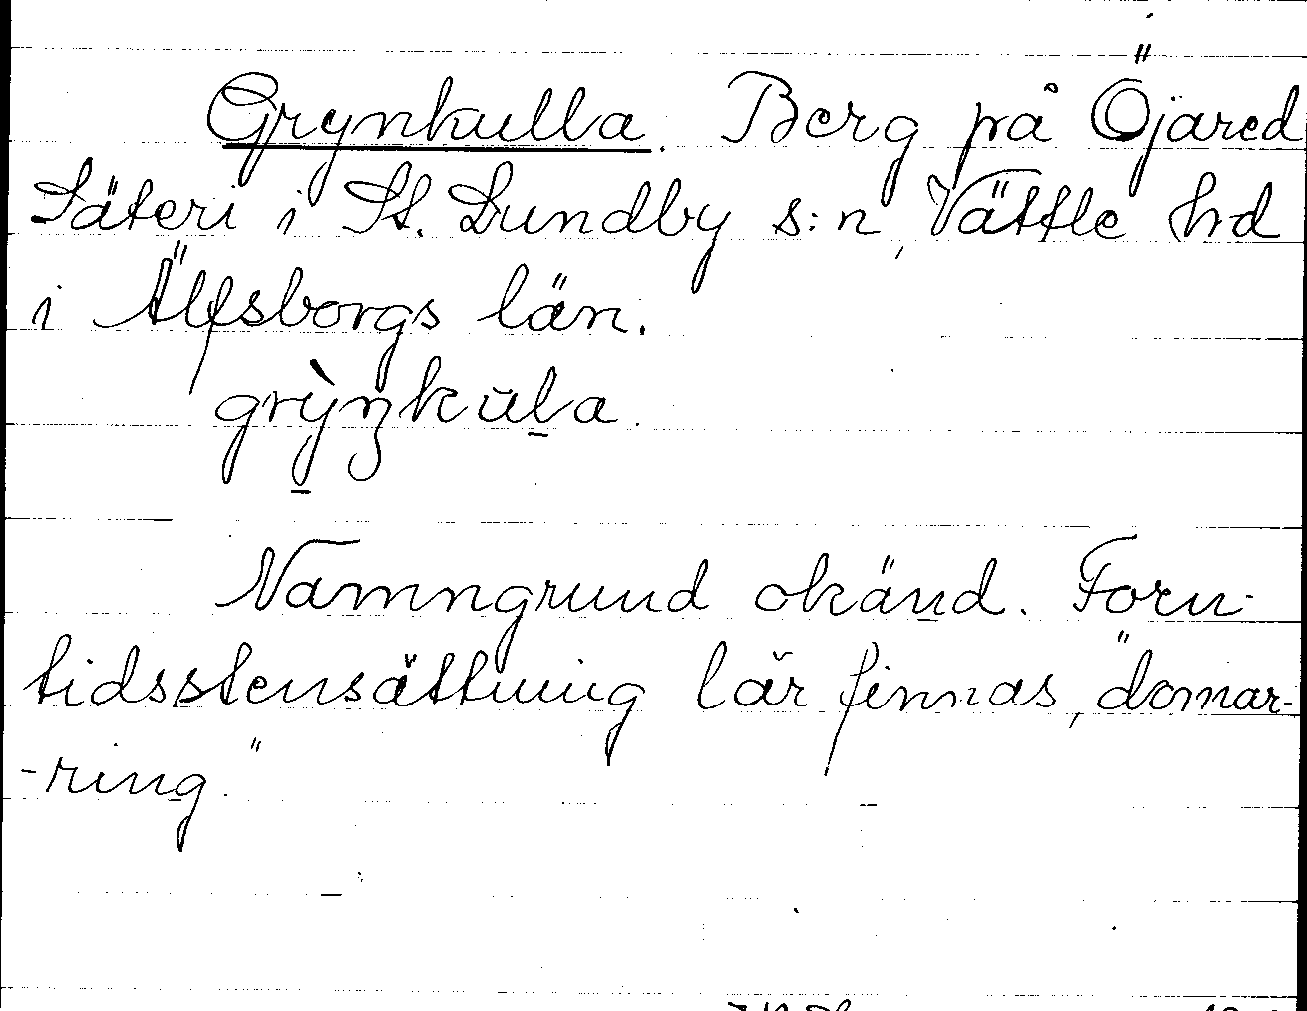 Grynkulla. Berg på Öjared
Säteri i St. Lundby s:n, Vättle hrd
i Älfsborgs län.
grỳŋkula.
Namngrund okänd. Forn-
tidsstensättning lär finnas, "domar-
-ring."